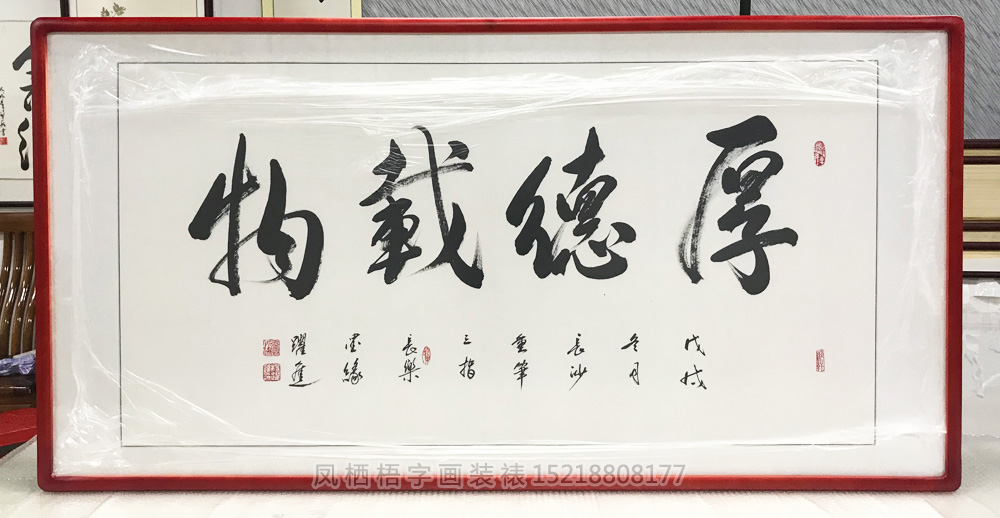 厚德載物
戊戌
冬月
長沙
無筆
三指
長樂
墨緣
躍進
凤栖梧字画装裱15218808177